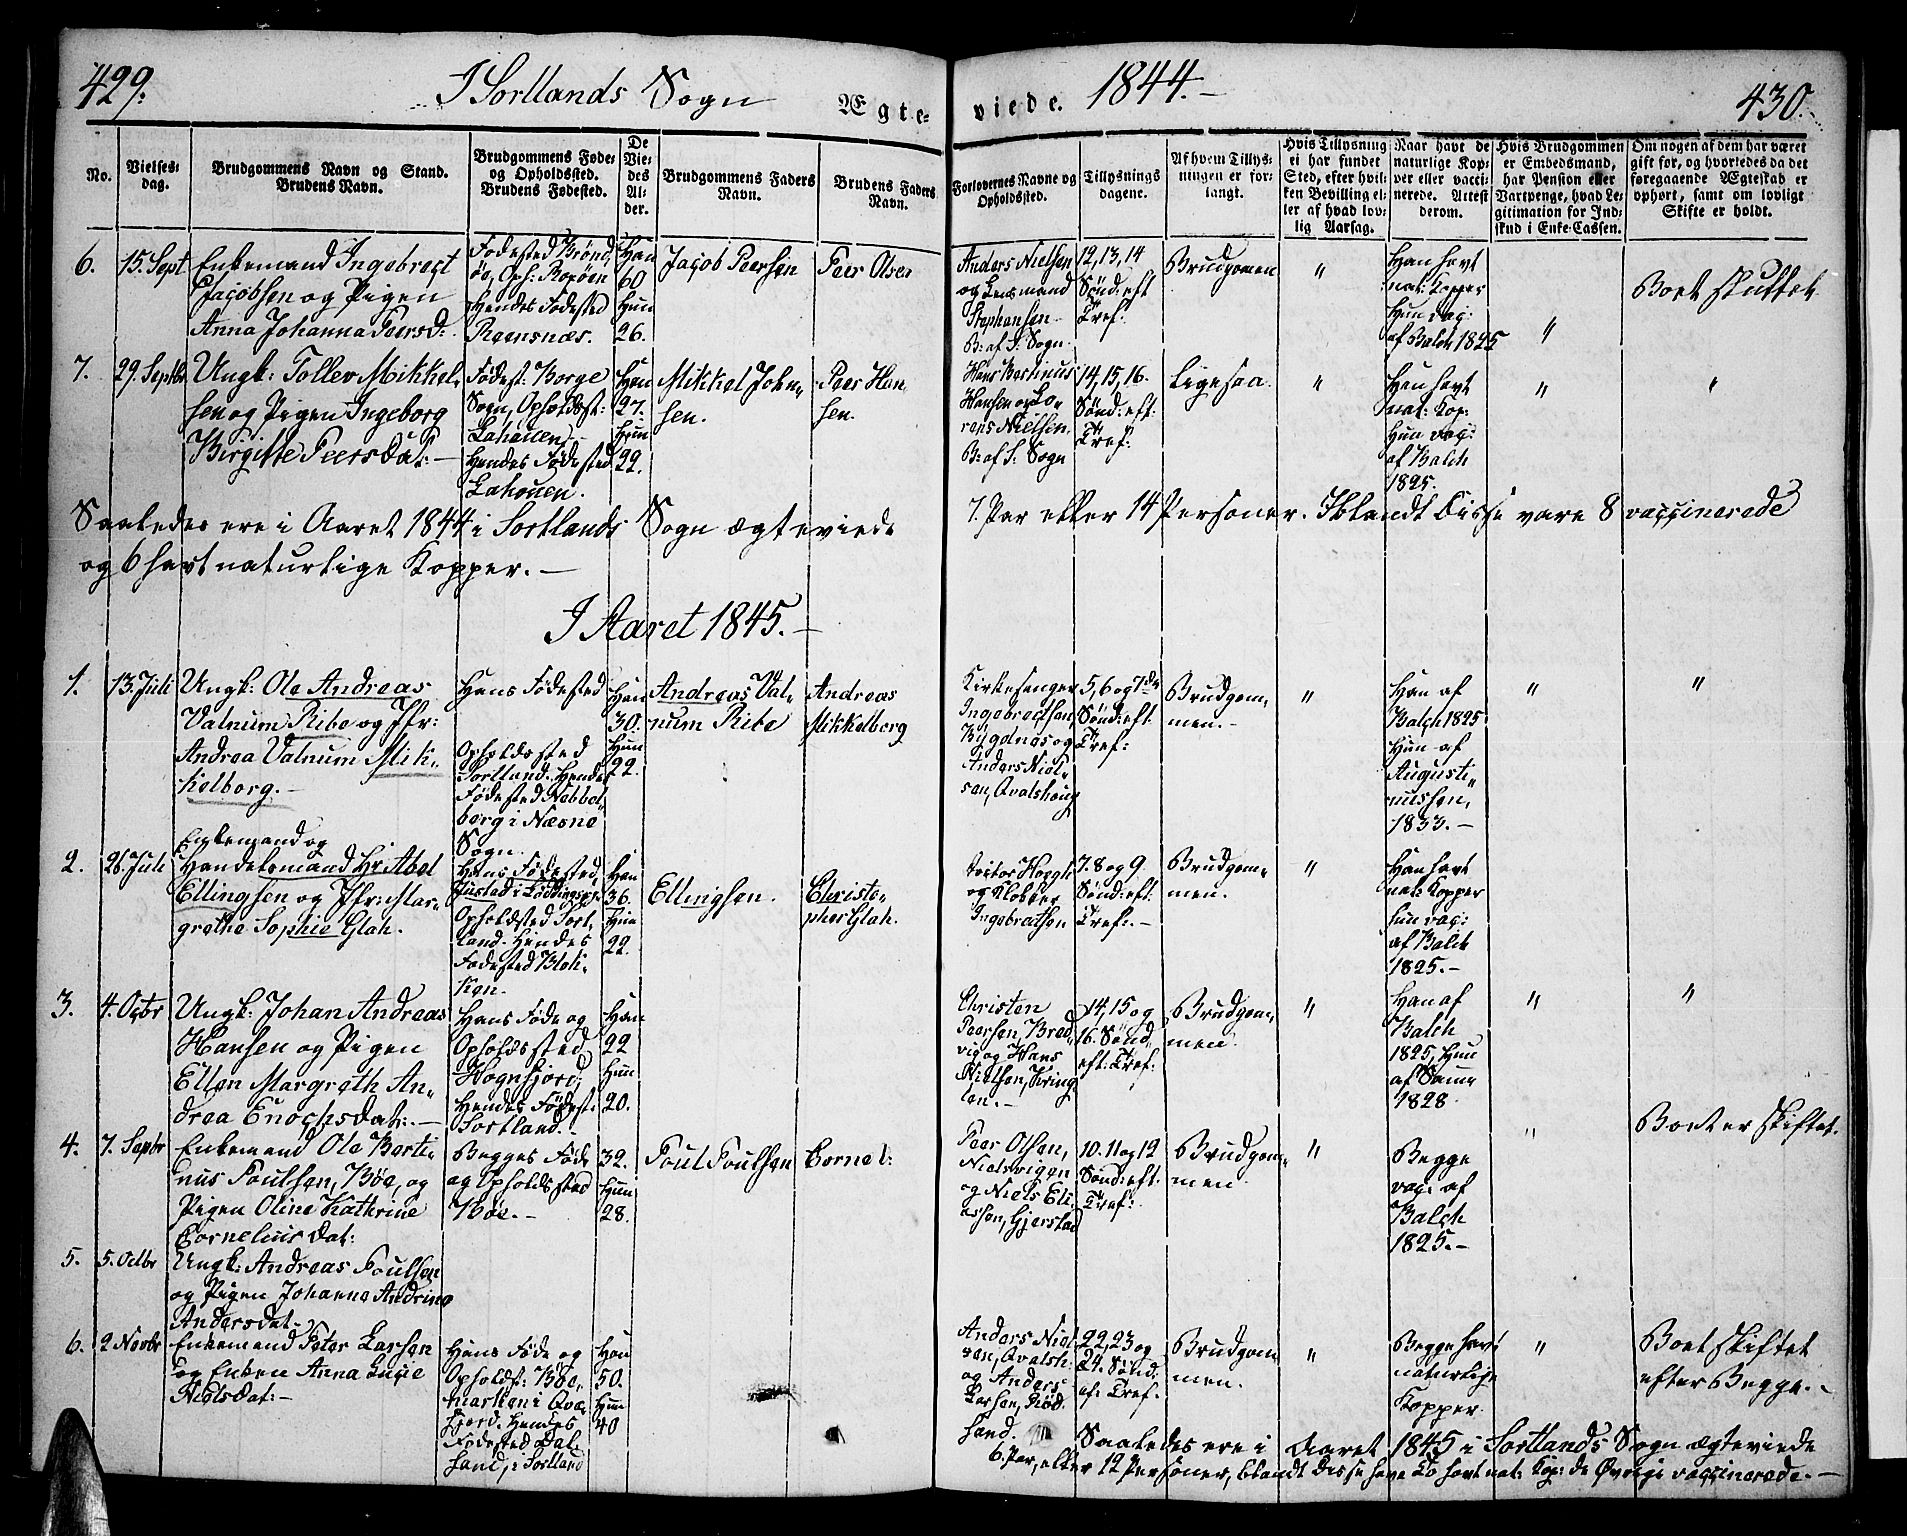 429.
I Sortlands Sogn
Ægte-
viede.
1844.-
430.
No.
Vielses-
dag.
Brudgommens Navn og Stand.
Brudens Navn.
Brudgommens Føde-
og Opholdssted.
Brudens Fødested.
De
Vie-
des
Al-
der.
Brudgommens Faders
Navn.
Brudens Faders
Navn.
Forlovernes Navne og
Opholdssted.
Tillysnings
dagene.
Af hvem Tillys-
ningen er for-
langt.
Hvis Tillysning
ei har fundet
Sted, efter hvil-
ken Bevilling el-
ler af hvad lov-
lig Aarsag.
Naar havt de
naturlige Kop-
per eller vacci-
nerede. Attest
derom.
Hvis Brudgommen
er Embedsmand,
har Pension eller
Vartpenge, hvad Le-
gitimation for Ind-
skud i Enke-Cassen.
Om nogen af dem har været
gift før, og hvorledes da det
foregaaende Ægteskab er
ophørt, samt om lovligt
Skifte er holdt.
6.
15. Sept
Enkemand Ingebregt
Jacobsen og Pigen
Anna Johanna Peersd:
Fødested Brønd,
øe, Oph:
Hendes Fødested
Reensnæs.
Han
60
Hun
26.
Jacob Peersen
Peer Olsen
Anders Nielsen
og Lensmand
Stephensen
B: af S: Sogn.
12, 13, 14
Sønd: eft
Tref:
Brudgomen
"
Han havt
nat: Kopper
Hun vac:
af Balch 1825
"
Boet skiftet
7.
29. Septbr
Ungk: Tollev Mikkel,
sen og Pigen Ingeborg
Birgitte Peersdat:-
Fødest: Borge
Sogn, Opholdsst:
Lahauen,
Hendes Fødested
Lahauen.
Han
27.
Hun
22.
Mikkel John,
sen.
Peer Han,
sen.
Hans Bertinus
Hansen og Lo,
rens Nielsen.
B: af S: Sogn
14, 15, 16.
Sønd: eft:
Tref:
Ligesaa.
"
Han havt
nat: Kop:
Hun vac:
af Balch
1825.
"
"
Saaledes ere i Aaret 1844 i Sortlands Sogn ægteviede
7. Par eller 14 Personer. Iblandt Disse vare 8 vaccinerede
og 6 havt naturlige Kopper.-
I Aaret 1845.-
1.
13. Juli
Ungk: Ole Andreas
Valnum Ribe og Jfr:
Andrea Valnum Mik,
kelborg.-
Hans Fødested
Opholdssted
Sortland. Hendes
Fødested Nebbel,
berg i Næsne
Sogn.
Han
30.
Hun
22.
Andreas Val,
num Ribe
Andreas
Mikkelborg
Kirkesanger
Ingebregtsen
Bygdnes og
Anders Niel,
sen, Qvalshaug
5, 6 og 7de
Sønd: eft:
Tref:
Brudgom,
men.-
"
Han af
Balch 1825
Hun af
Augusti,
nussen,
1833.-
"
"
2.
26. Juli
Enkemand og
Handelsmand Hr Abel
Ellingsen og Jfr Mar,
grethe Sophie Glah.
Hans Fødested,
Justad i
Opholdssted Sort,
land. Hendes
Fødested Blok,
ken.
Han
36.
Hun
22.
Ellingsen.
Christo,
pher Glah.
og Klokker
Ingebretsen
7. 8 og 9.
Sønd: eft:
Tref:.-
Brudgom,
men.
"
Han havt
nat: Kopper
hun vac:
af Balch
1825.-
3.
4. Octbr
Ungk: Johan Andreas
Hansen og Pigen
Ellen Margreth An,
drea Enochsdat:.-
Hans Føde og
Opholdssted
Hognfjord,
Hendes Fødest:
Sortland.
Han
22
Hun
20.
Christen
Peersen, Bred,
vig og Hans
Nielsen, Kring,
len.-
14, 15 og
16. Sønd,
eft: Tref:
Brudgom,
men.
"
Han af
Balch
1825, Hun
af Samme
1828
"
"
4.
7. Sepbr
Enkemand Ole Berti,
nus Poulsen, Bøe, og
Pigen Oline Kathrine
Corneliusdat:
Begges Føde
og Opholdssted
Bøe.-
32.
Hun
28.
Poul Poulsen
Cornel:
Peer Olsen,
Nielsvigen
og Niels Eli,
assen, Gjerstad
10. 11 og 12
Sønd: eft.
Tref:
Brudgom,
men.
"
Begge
vac: af
Balch
1825.-
"
Boet er skiftet.
5.
5. Octbr
Ungk: Andreas Poulsen
og Pigen Johanna Andrina
Andersdat.
6.
2 Novbr
Enkemand Peter Larsen
og Enken Anna Lucie
Nielsdat:-
Hans Føde og
Opholdst: Bøe,
marken i Qvæ,
fjord. Hendes
Fødested Dal,
sand, i Sortland
Han
50.
Hun
40
Anders Niel,
sen, Qvalsh:
og Anders
Larsen, Rød,
sand.
22, 23 og
24. Sønd,
ef: Tref.
Brudgom
men.
"
Begge havt
naturlige
Kopper.
"
Boet skiftet
efter Begge.-
Saaledes ere i Aaret 1845 i Sortlands Sogn ægteviede
6. Par, eller 12 Personer, blandt Disse have To havt nat: Kop: de Øvrige vaccinerede.-